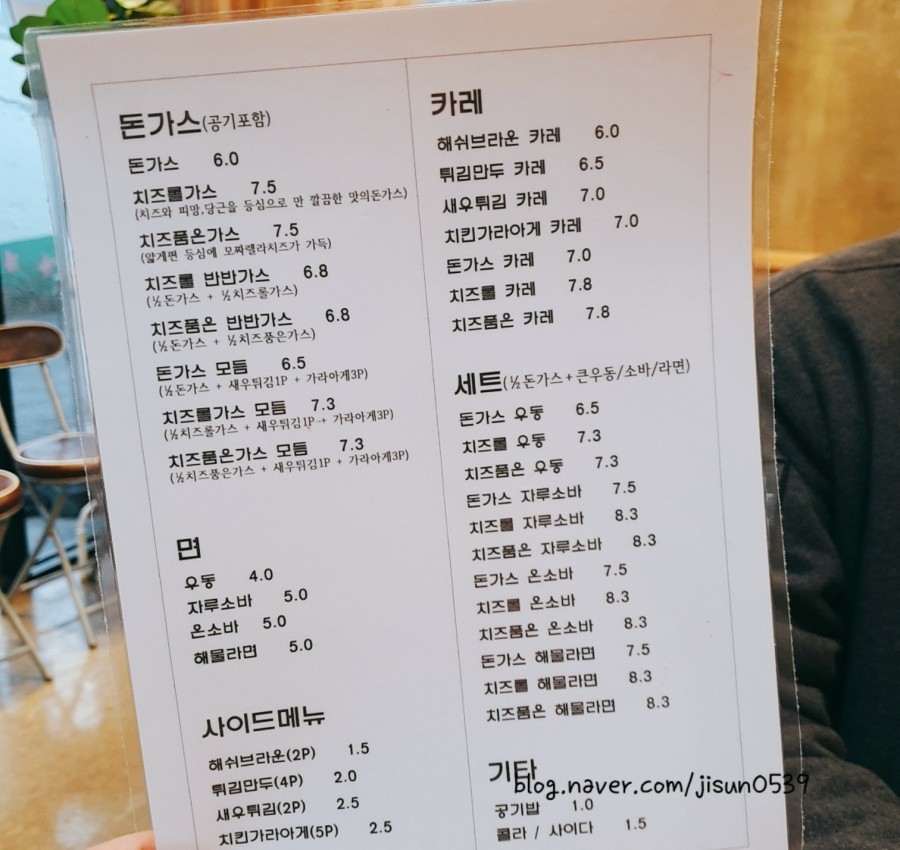 돈가스(공기포함)
돈가스 6.0
치즈롤가스 7.5
(치즈와 피망,당근을 등심으로 만 깔끔한 맛의돈가스)
치즈품은가스 7.5
(얇게편 등심에 모짜렐라치즈가 가득)
치즈롤 반반가스 6.8
(½돈가스 + ½치즈롤가스)
치즈품은 반반가스 6.8
(½돈가스 + ½치즈품은가스)
돈가스 모듬 6.5
(½돈가스 + 새우튀김1P + 가라아게3P)
치즈롤가스 모듬 7.3
(½치즈롤가스 + 새우튀김1P + 가라아게3P)
치즈품은가스 모듬 7.3
(½치즈품은가스 + 새우튀김1P + 가라아게3P)
면
우동 4.0
자루소바 5.0
온소바 5.0
해물라면 5.0
사이드메뉴
해쉬브라운(2P) 1.5
튀김만두(4P) 2.0
새우튀김(2P) 2.5
치킨가라아게(5P) 2.5
카레
해쉬브라운 카레 6.0
튀김만두 카레 6.5
새우튀김 카레 7.0
치킨가라아게 카레 7.0
돈가스 카레 7.0
치즈롤 카레 7.8
치즈품은 카레 7.8
세트(½돈가스+큰우동/소바/라면)
돈가스 우동 6.5
치즈롤 우동 7.3
치즈품은 우동 7.3
돈가스 자루소바 7.5
치즈롤 자루소바 8.3
치즈품은 자루소바 8.3
돈가스 온소바 7.5
치즈롤 온소바 8.3
치즈품은 온소바 8.3
돈가스 해물라면 7.5
치즈롤 해물라면 8.3
치즈품은 해물라면 8.3
기타
blog.naver.com/jisun0539
공기밥 1.0
콜라 / 사이다 1.5